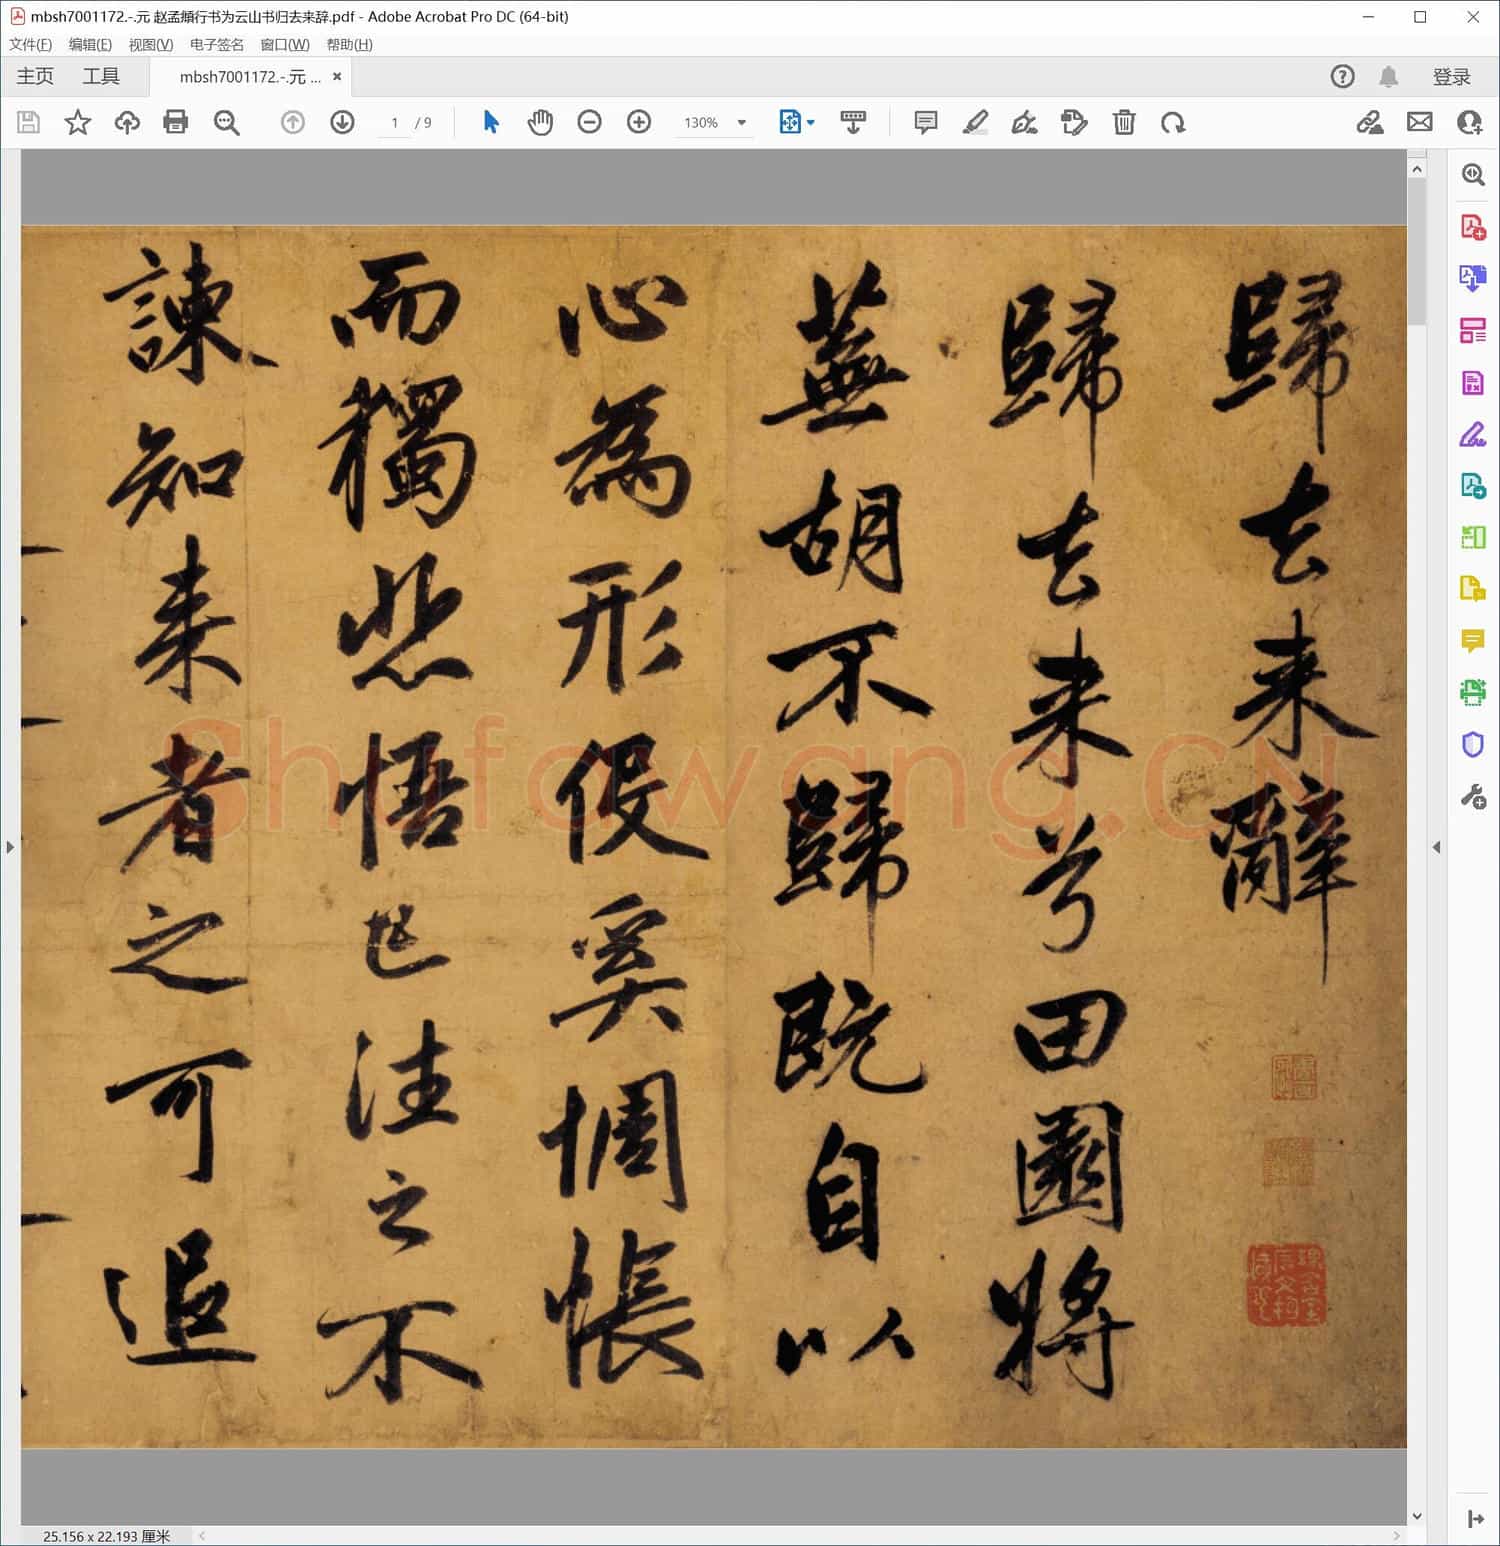 mbsh7001172.-.元 赵孟頫行书为云山书归去来辞.pdf - Adobe Acrobat Pro DC (64-bit)
文件(F) 编辑(E) 视图(V) 电子签名 窗口(W) 帮助(H)
主页 工具 mbsh7001172.-.元 ... × 登录
1 / 9 130%
歸去来辭
歸去来兮田園將
蕪胡不歸既自以
心為形役奚惆悵
而獨悲悟已往之不
諫知来者之可追
Shufawang.CN
25.156 x 22.193 厘米